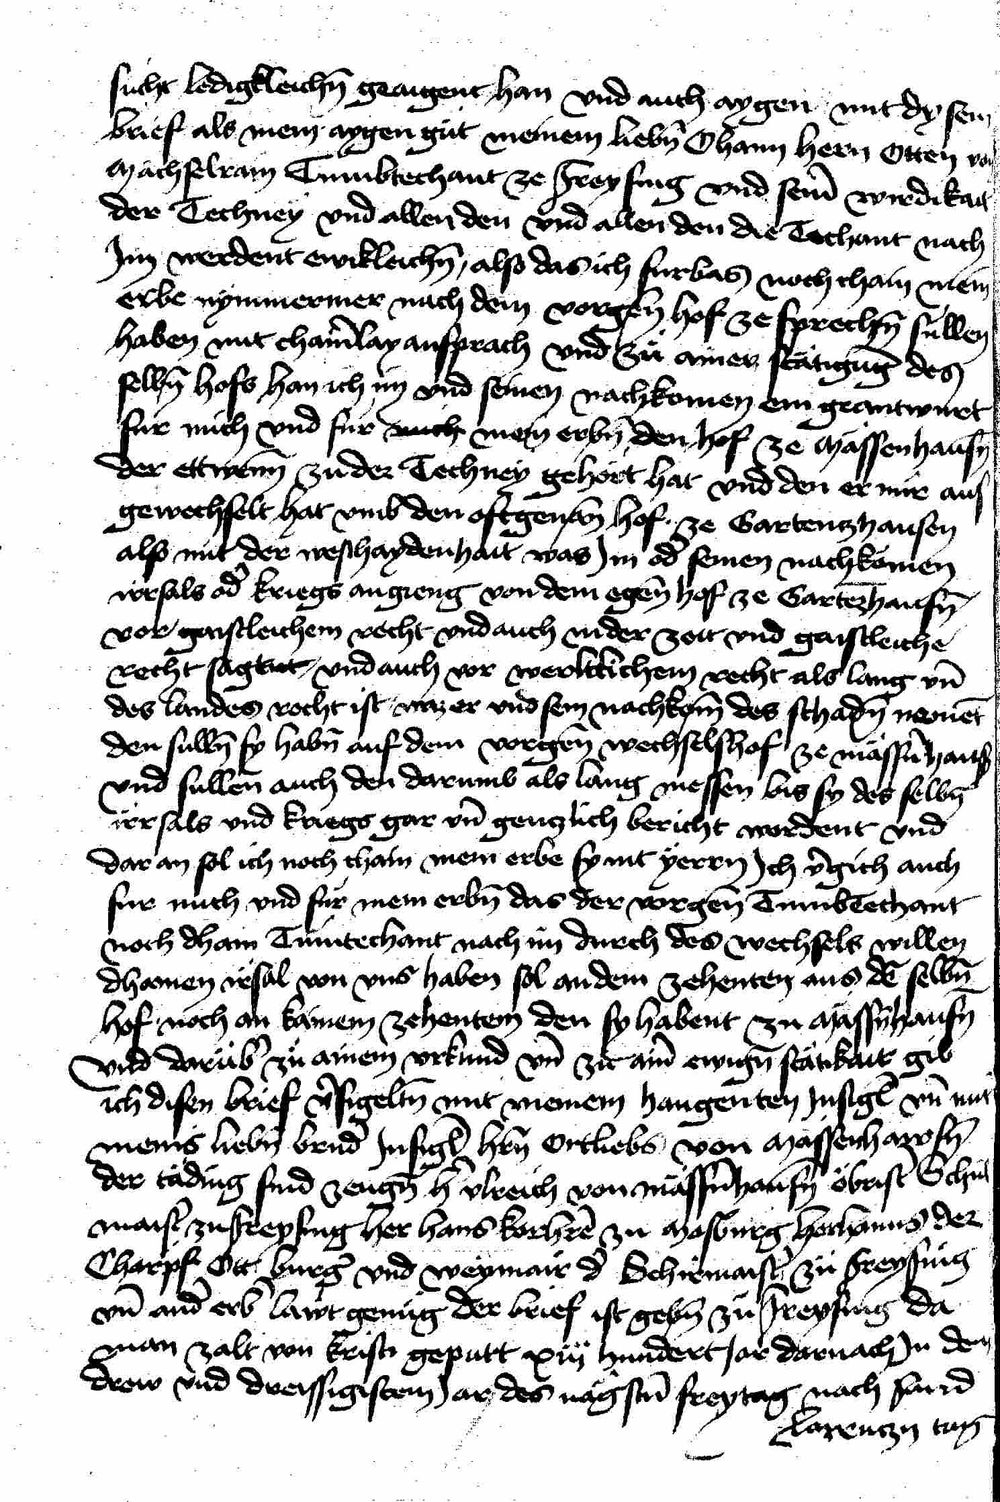 sucht ledigkleichn̄ geaigent han vnd auch aygen mit dysem
brief als mein aygen güt meinem liebn̄ Ohaim hern Otten von
Mächselrain Tuumbtechant ze Freysing vnd sein̄ wirdikait
der Techney vnd allen den vnd allen den die Techant nach
Im werdent ewikleichn̄, also das ich furbas noch chain mein
erbe nymmermer nach dem vorgen̄ hof ze sprechn̄ süllen
haben mit chain̄lay ansprach vnd zü ainer stätigūg des
selbn̄ hofs han ich im vnd seinen nachkomen ein geantwurt
für mich vnd fur mein erbn̄ den hof ze Mässenhausn̄
der ettwenn̄ zu der Techney gehört hat vnd den er mir aus
gewechselt hat vmb den oftgenan̄ hof ze Gartenzhausen
also mit der beschaydenhait was Im od̄ seinen nachkomen
irrsals od̄ kriegs angieng von dem egen̄ hof ze Gartezhausn̄
vor gaistleichem recht vnd auch in der zeit vnd gaistleiche
recht sagt vnd auch vor werltlichem recht als lang vn̄
des landes recht ist waz er vnd sein nachkom̄ des schadn̄ nement
den sulln̄ sy habn̄ auf dem vorgen̄ wechselhof ze mässn̄haus̄
vnd sullen auch den darumb als lang niessen bis sy des selbn̄
irrsals vnd kriegs gar vn̄ genczlich bericht werdent vnd
dar an sol ich noch chain mein erbe sy nit yerrn Ich v̄gich auch
fur mich vnd für mein erbn̄ das der vorgen̄ Tuumbtechant
noch dhain Tuumtechant nach im durch des wechsels willen
dhainen irsal von vns haben sol an dem zehenten aus dē selbn̄
hof noch an kainem zehentem den sy habent zu Mässn̄hausn̄
Vnd darüb̄ zü ainem vrkund vn̄ zu ain̄ ewign̄ stätikait gib
ich disen brief v̄sigeltn̄ mit meinem hangenten Insigl̄ vn̄ mit
meins liebn̄ brud̄ Insigl̄ hrn̄ Ortliebs von Mässenhawsn̄
der täding sind zeugn̄ h̄ vlreich von mässn̄hausn̄ öbrist Schul
maist̄ zu freysing her hans korhrē zu Mosburg hochanns̄ der
Charpf Ott burḡ vnd weymair d̄ Schirmaist̄ zü freysing
vn̄ and̄ erb̄ läwt genüg der brief ist gebn̄ zü Freysing da
man zalt von kristi gepurt xiij hundert Iar darnach In dem
drew vnd dreissigistem Iar des nägstn̄ freytag nach sand
Larenczn tag